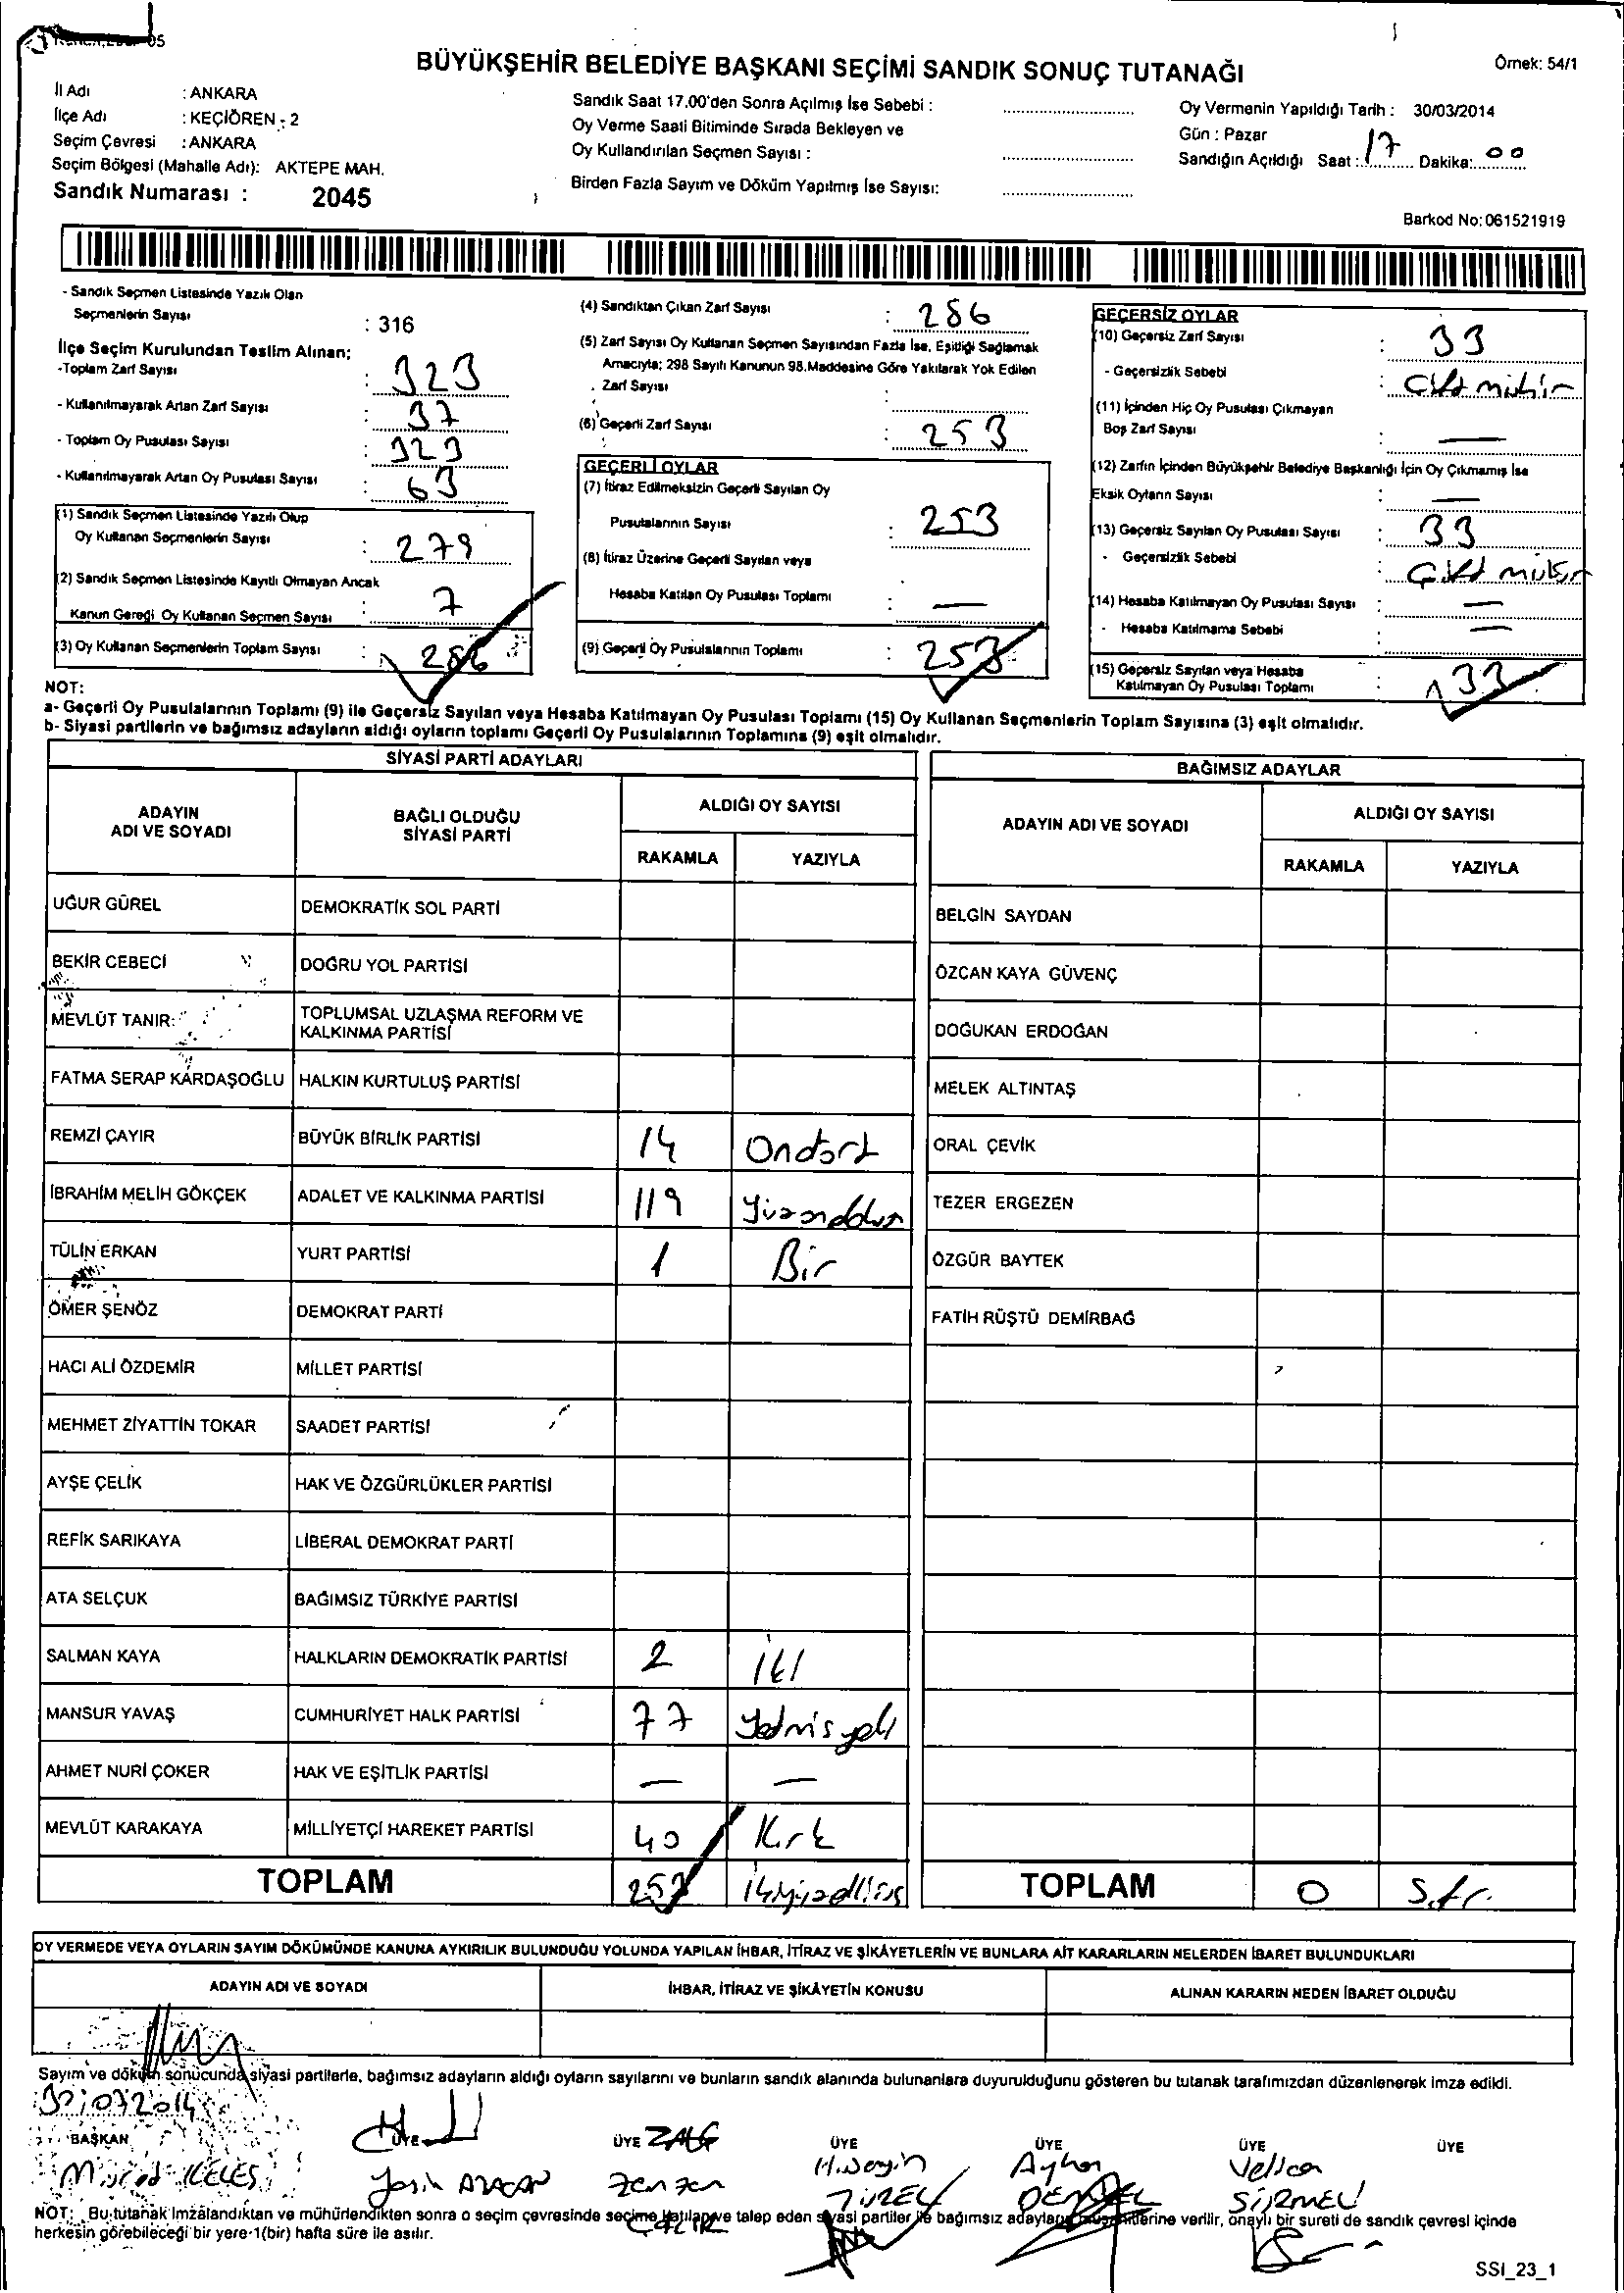 BÜYÜKŞEHİR BELEDİYE BAŞKANI SEÇİMİ SANDIK SONUÇ TUTANAĞI
Örnek: 54/1
İl Adı : ANKARA
İlçe Adı : KEÇİÖREN - 2
Seçim Çevresi : ANKARA
Seçim Bölgesi (Mahalle Adı): AKTEPE MAH.
Sandık Numarası : 2045
Sandık Saat 17.00'den Sonra Açılmış İse Sebebi :
Oy Verme Saati Bitiminde Sırada Bekleyen ve
Oy Kullandırılan Seçmen Sayısı :
Birden Fazla Sayım ve Döküm Yapılmış İse Sayısı:
Oy Vermenin Yapıldığı Tarih : 30/03/2014
Gün : Pazar
Sandığın Açıldığı Saat : 17 Dakika: 00
Barkod No: 061521919
- Sandık Seçmen Listesinde Yazılı Olan
Seçmenlerin Sayısı : 316
İlçe Seçim Kurulundan Teslim Alınan;
-Toplam Zarf Sayısı : 323
- Kullanılmayarak Artan Zarf Sayısı : 37
- Toplam Oy Pusulası Sayısı : 323
- Kullanılmayarak Artan Oy Pusulası Sayısı : 63
(1) Sandık Seçmen Listesinde Yazılı Olup
Oy Kullanan Seçmenlerin Sayısı : 279
(2) Sandık Seçmen Listesinde Kayıtlı Olmayan Ancak
Kanun Gereği Oy Kullanan Seçmen Sayısı : 7
(3) Oy Kullanan Seçmenlerin Toplam Sayısı : 286
(4) Sandıktan Çıkan Zarf Sayısı : 286
(5) Zarf Sayısı Oy Kullanan Seçmen Sayısından Fazla İse, Eşitliği Sağlamak
Amacıyla; 298 Sayılı Kanunun 98.Maddesine Göre Yakılarak Yok Edilen
Zarf Sayısı :
(6) Geçerli Zarf Sayısı : 253
GEÇERLİ OYLAR
(7) İtiraz Edilmeksizin Geçerli Sayılan Oy
Pusulalarının Sayısı : 253
(8) İtiraz Üzerine Geçerli Sayılan veya
Hesaba Katılan Oy Pusulası Toplamı : —
(9) Geçerli Oy Pusulalarının Toplamı : 253
GEÇERSİZ OYLAR
(10) Geçersiz Zarf Sayısı : 33
- Geçersizlik Sebebi : Çift mühür
(11) İçinden Hiç Oy Pusulası Çıkmayan
Boş Zarf Sayısı : —
(12) Zarfın İçinden Büyükşehir Belediye Başkanlığı İçin Oy Çıkmamış İse
Eksik Oyların Sayısı : —
(13) Geçersiz Sayılan Oy Pusulası Sayısı : 33
- Geçersizlik Sebebi : Çift mühür
(14) Hesaba Katılmayan Oy Pusulası Sayısı : —
- Hesaba Katılmama Sebebi : —
(15) Geçersiz Sayılan veya Hesaba
Katılmayan Oy Pusulası Toplamı : 33
NOT:
a- Geçerli Oy Pusulalarının Toplamı (9) ile Geçersiz Sayılan veya Hesaba Katılmayan Oy Pusulası Toplamı (15) Oy Kullanan Seçmenlerin Toplam Sayısına (3) eşit olmalıdır.
b- Siyasi partilerin ve bağımsız adayların aldığı oyların toplamı Geçerli Oy Pusulalarının Toplamına (9) eşit olmalıdır.
SİYASİ PARTİ ADAYLARI
ADAYIN ADI VE SOYADI
BAĞLI OLDUĞU SİYASİ PARTİ
ALDIĞI OY SAYISI
RAKAMLA YAZIYLA
UĞUR GÜREL DEMOKRATİK SOL PARTİ
BEKİR CEBECİ DOĞRU YOL PARTİSİ
MEVLÜT TANIR TOPLUMSAL UZLAŞMA REFORM VE
KALKINMA PARTİSİ
FATMA SERAP KARDAŞOĞLU HALKIN KURTULUŞ PARTİSİ
REMZİ ÇAYIR BÜYÜK BİRLİK PARTİSİ 14 Ondört
İBRAHİM MELİH GÖKÇEK ADALET VE KALKINMA PARTİSİ 119 Yüzondokuz
TÜLİN ERKAN YURT PARTİSİ 1 Bir
ÖMER ŞENÖZ DEMOKRAT PARTİ
HACI ALİ ÖZDEMİR MİLLET PARTİSİ
MEHMET ZİYATTİN TOKAR SAADET PARTİSİ
AYŞE ÇELİK HAK VE ÖZGÜRLÜKLER PARTİSİ
REFİK SARIKAYA LİBERAL DEMOKRAT PARTİ
ATA SELÇUK BAĞIMSIZ TÜRKİYE PARTİSİ
SALMAN KAYA HALKLARIN DEMOKRATİK PARTİSİ 2 İki
MANSUR YAVAŞ CUMHURİYET HALK PARTİSİ 77 Yetmişyedi
AHMET NURİ ÇOKER HAK VE EŞİTLİK PARTİSİ — —
MEVLÜT KARAKAYA MİLLİYETÇİ HAREKET PARTİSİ 40 Kırk
TOPLAM 253 İkiyüzelliüç
BAĞIMSIZ ADAYLAR
ADAYIN ADI VE SOYADI
ALDIĞI OY SAYISI
RAKAMLA YAZIYLA
BELGİN SAYDAN
ÖZCAN KAYA GÜVENÇ
DOĞUKAN ERDOĞAN
MELEK ALTINTAŞ
ORAL ÇEVİK
TEZER ERGEZEN
ÖZGÜR BAYTEK
FATİH RÜŞTÜ DEMİRBAĞ
TOPLAM 0 Sıfır
OY VERMEDE VEYA OYLARIN SAYIM DÖKÜMÜNDE KANUNA AYKIRILIK BULUNDUĞU YOLUNDA YAPILAN İHBAR, İTİRAZ VE ŞİKÂYETLERİN VE BUNLARA AİT KARARLARIN NELERDEN İBARET BULUNDUKLARI
ADAYIN ADI VE SOYADI
İHBAR, İTİRAZ VE ŞİKÂYETİN KONUSU
ALINAN KARARIN NEDEN İBARET OLDUĞU
Sayım ve döküm sonucunda siyasi partilerle, bağımsız adayların aldığı oyların sayılarını ve bunların sandık alanında bulunanlara duyurulduğunu gösteren bu tutanak tarafımızdan düzenlenerek imza edildi.
30/03/2014
BAŞKAN ÜYE ÜYE ÜYE ÜYE ÜYE ÜYE
Murat KELEŞ Yasin
NOT: Bu tutanak imzalandıktan ve mühürlendikten sonra o seçim çevresinde seçime katılan ve talep eden siyasi partiler ile bağımsız adayların müşahitlerine verilir, onaylı bir sureti de sandık çevresi içinde
herkesin görebileceği bir yere 1(bir) hafta süre ile asılır.
SSI_23_1